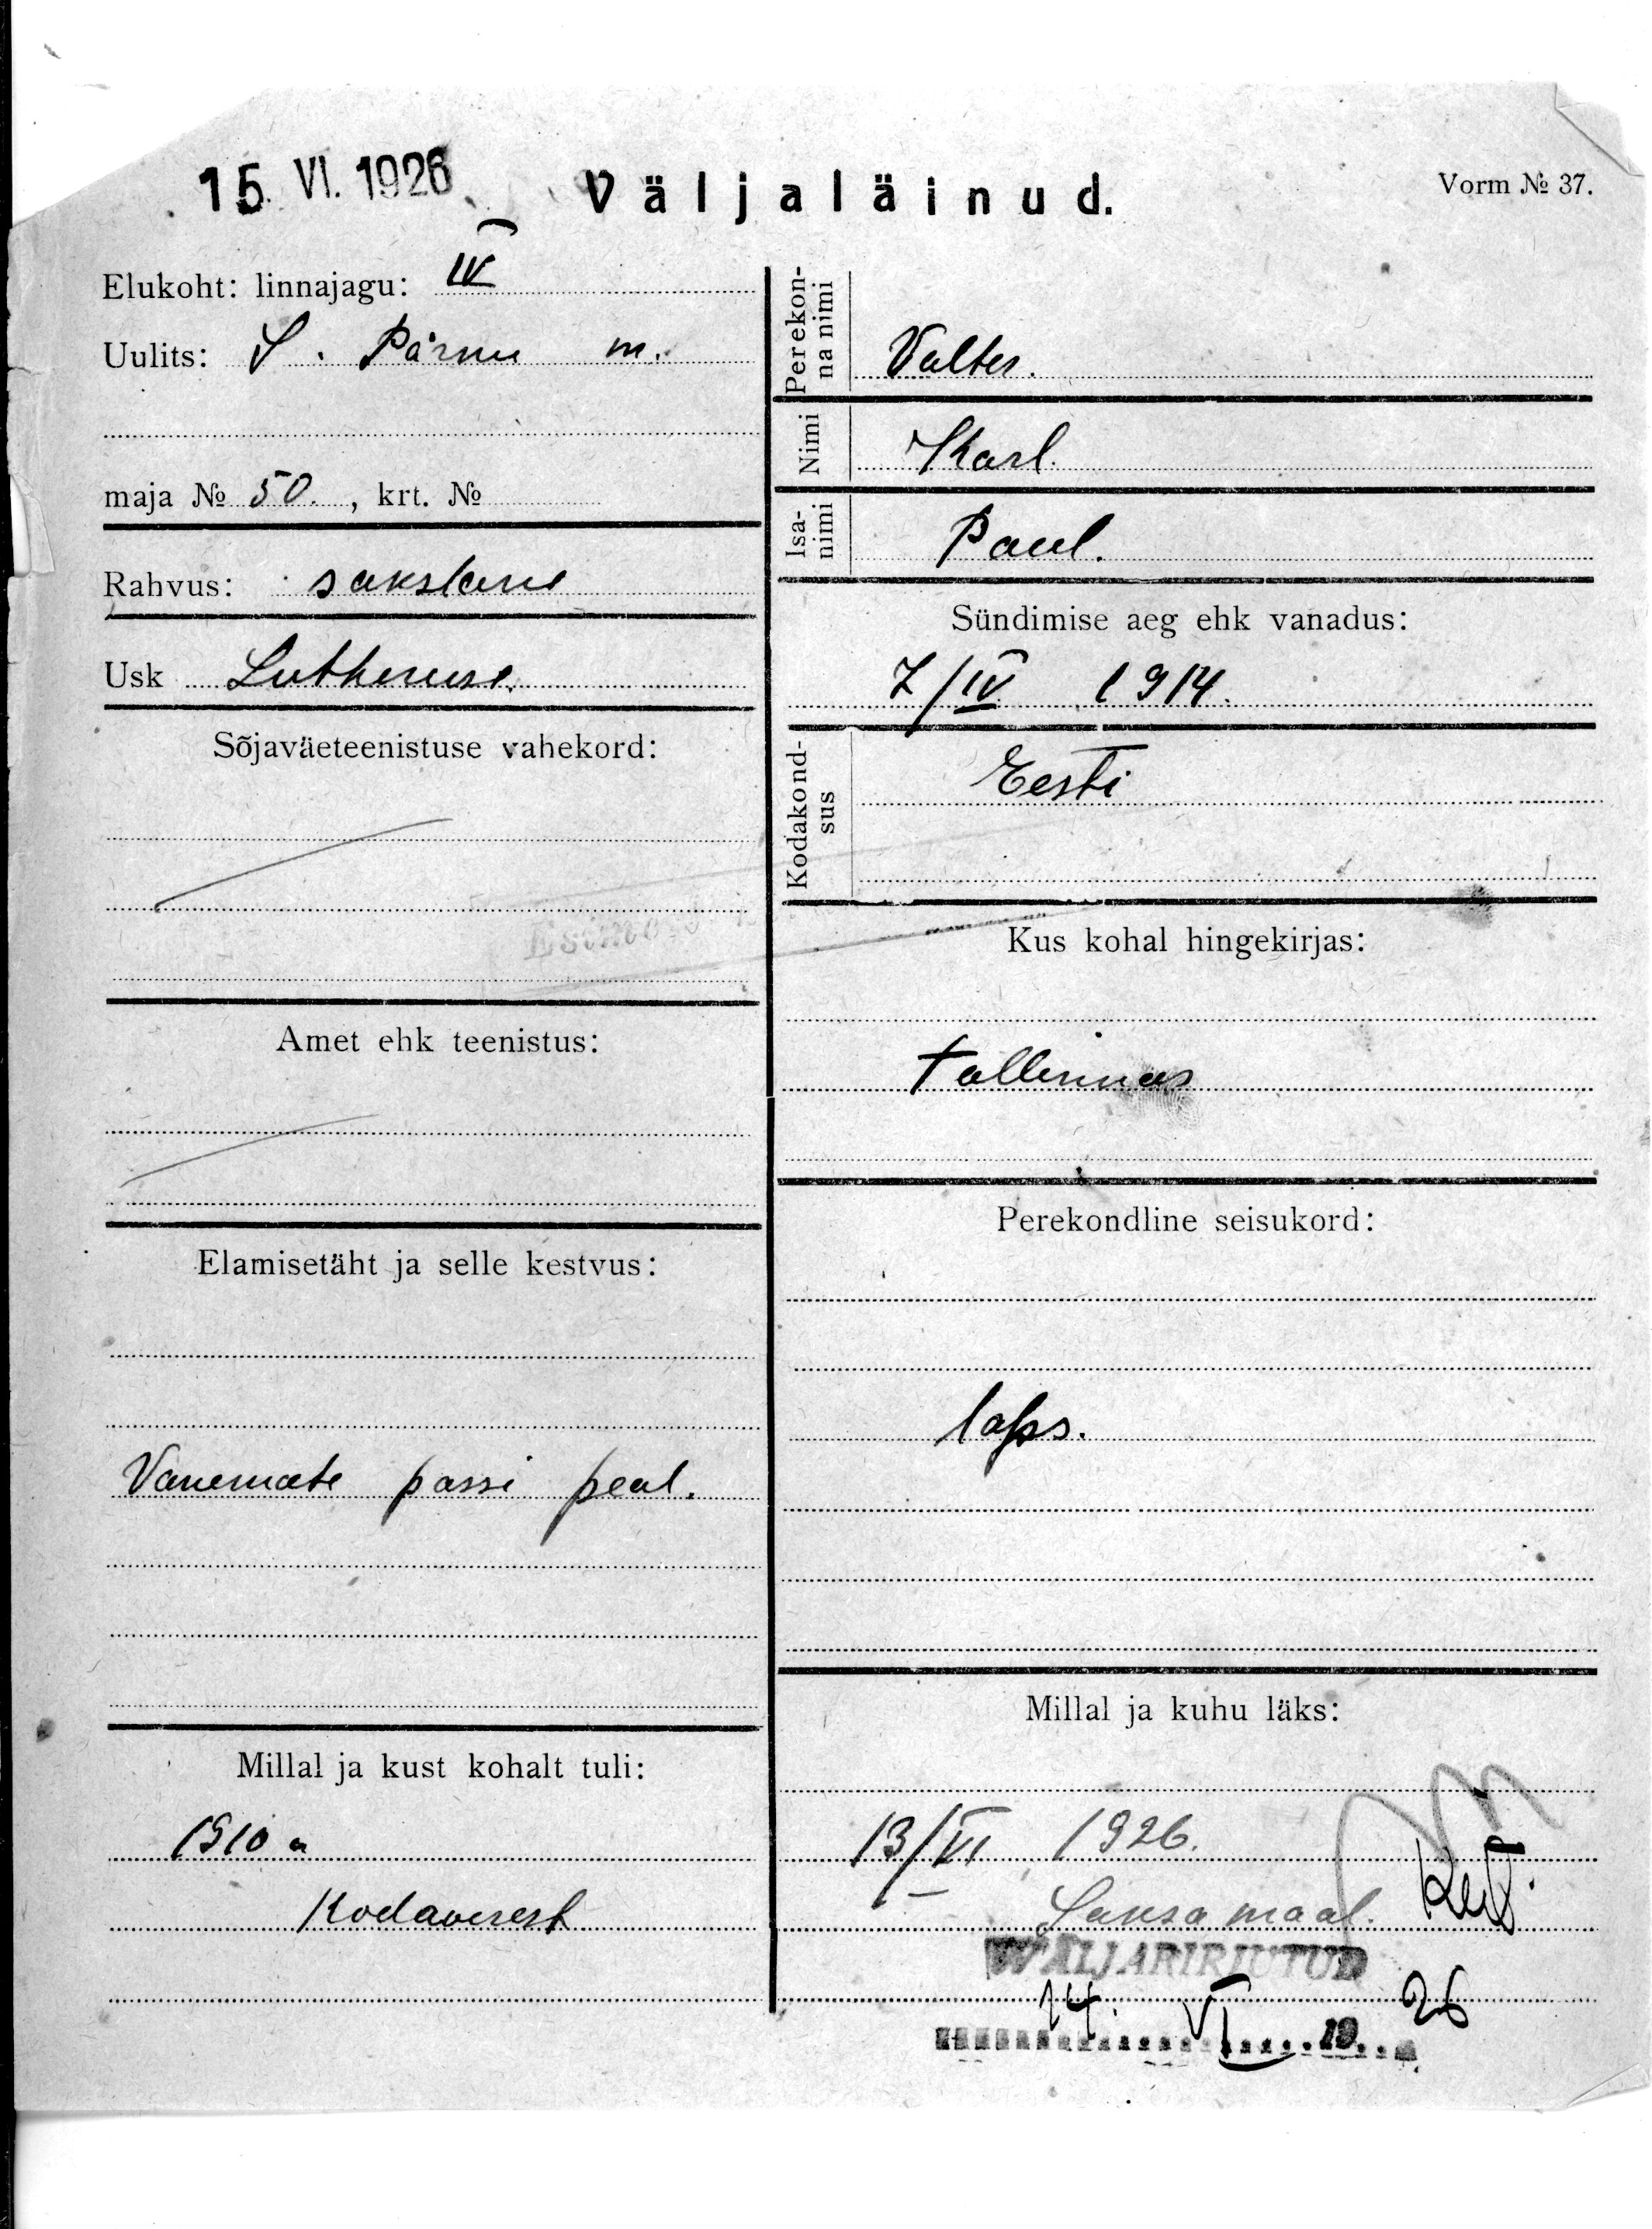 15. VI. 1926
Väljaläinud.
Vorm № 37.
Elukoht: linnajagu: IV
Uulits: S. Pärnu m.
maja № 50. , krt. №
Rahvus: sakslane
Usk Lutheruse.
Sõjaväeteenistuse vahekord:
Amet ehk teenistus:
Elamisetäht ja selle kestvus:
Vanemate passi peal.
Millal ja kust kohalt tuli:
1910 a
Kodaverest
Perekon-
na nimi
Valter.
Nimi Karl.
Isa-
nimi
Paul.
Sündimise aeg ehk vanadus:
7/IV 1914.
Kodakond-
sus
Eesti
Kus kohal hingekirjas:
Tallinnas
Perekondline seisukord:
laps.
Millal ja kuhu läks:
13/VI 1926.
Saksa maal.
WÄLJAKIRJUTUD
14. VI 19 26